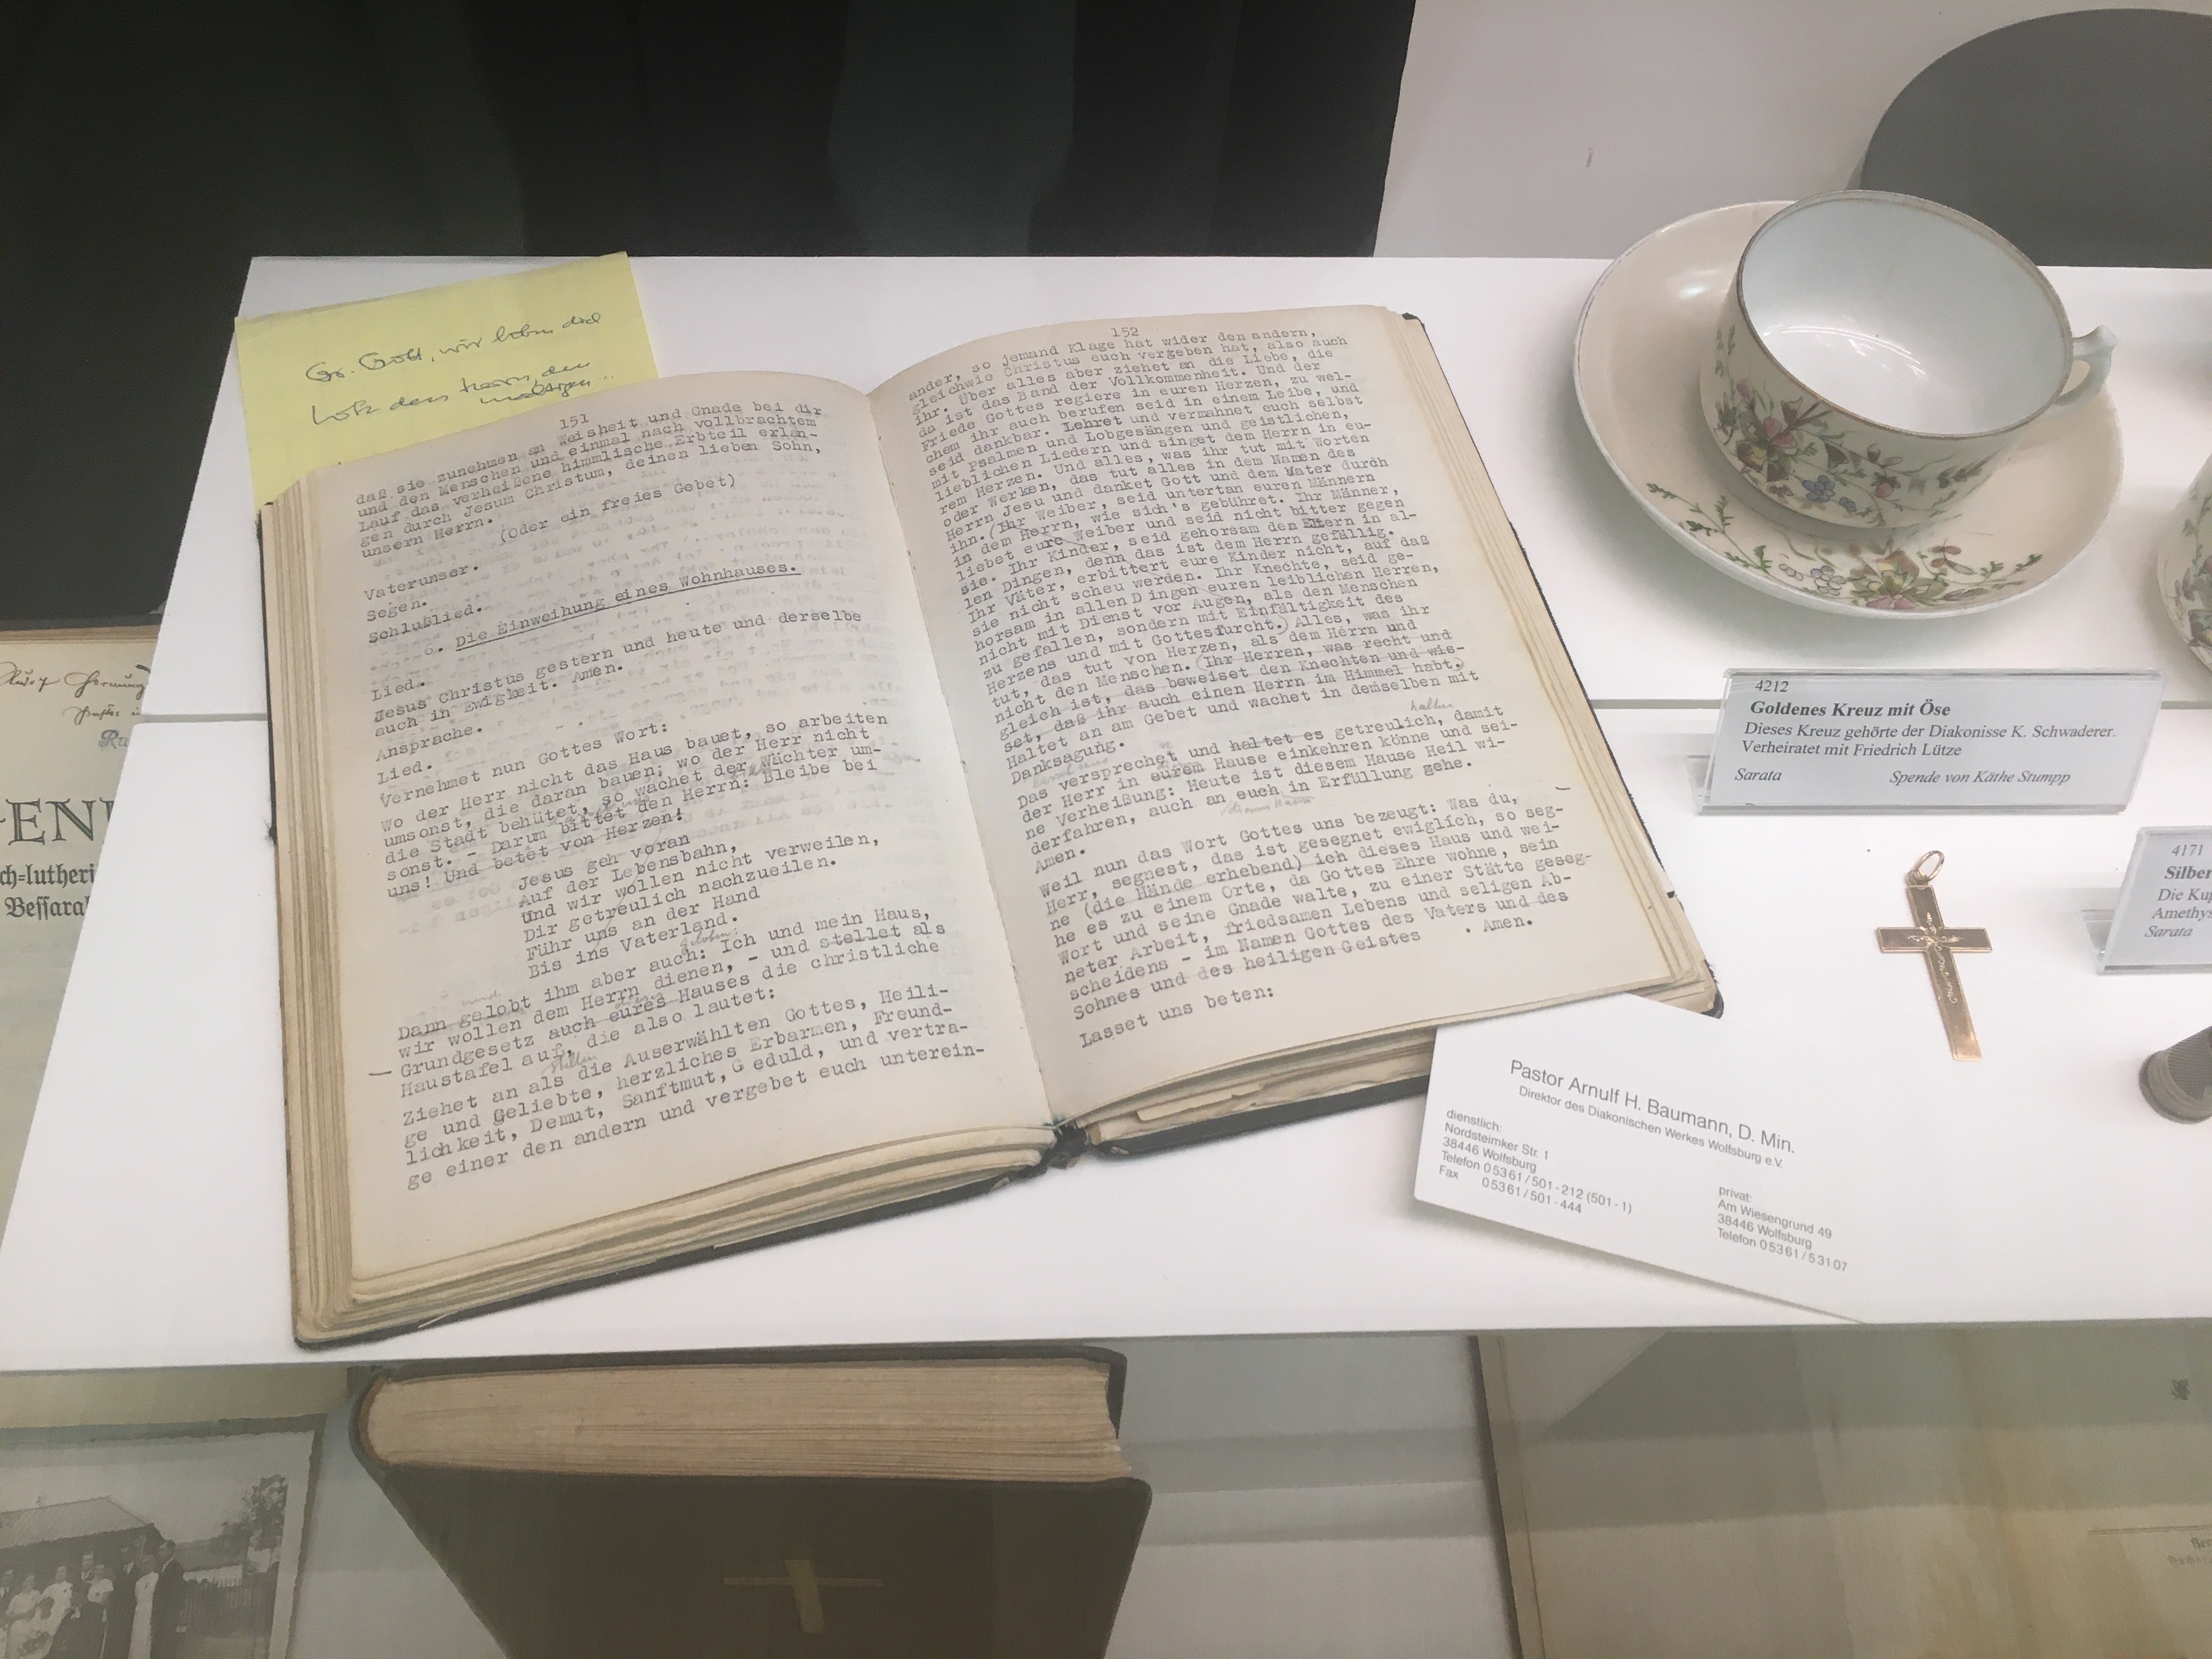 Gr. Gott, wir loben dich
Lobe den Herrn, den
mächtigen...
151
daß sie zunehmen an Weisheit und Gnade bei dir
und den Menschen und einmal nach vollbrachtem
Lauf das verheißene himmlische Erbteil erlan-
gen durch Jesum Christum, deinen lieben Sohn,
unsern Herrn.
(oder ein freies Gebet)
Vaterunser.
Segen.
Schlußlied.
6. Die Einweihung eines Wohnhauses.
Lied.
Jesus Christus gestern und heute und derselbe
auch in Ewigkeit. Amen.
Ansprache.
Lied.
Vernehmet nun Gottes Wort:
Wo der Herr nicht das Haus bauet, so arbeiten
umsonst, die daran bauen; wo der Herr nicht
die Stadt behütet, so wachet der Wächter um-
sonst. - Darum bittet den Herrn: Bleibe bei
uns! Und betet von Herzen!
Jesus geh voran
Auf der Lebensbahn,
Und wir wollen nicht verweilen,
Dir getreulich nachzueilen.
Führ uns an der Hand
Bis ins Vaterland.
geloben:
und
Dann gelobt ihm aber auch: Ich und mein Haus,
wir wollen dem Herrn dienen, - und stellet als
Grundgesetz auch eures Hauses die christliche
Haustafel auf, die also lautet:
stellen
Ziehet an als die Auserwählten Gottes, Heili-
ge und Geliebte, herzliches Erbarmen, Freund-
lichkeit, Demut, Sanftmut, Geduld, und vertra-
ge einer den andern und vergebet euch unterein-
152
ander, so jemand Klage hat wider den andern,
gleichwie Christus euch vergeben hat, also auch
ihr. Über alles aber ziehet an die Liebe, die
da ist das Band der Vollkommenheit. Und der
Friede Gottes regiere in euren Herzen, zu wel-
chem ihr auch berufen seid in einem Leibe, und
seid dankbar. Lehret und vermahnet euch selbst
mit Psalmen und Lobgesängen und geistlichen,
lieblichen Liedern und singet dem Herrn in eu-
rem Herzen. Und alles, was ihr tut mit Worten
oder Werken, das tut alles in dem Namen des
Herrn Jesu und danket Gott und dem Vater durch
ihn. (Ihr Weiber, seid untertan euren Männern
in dem Herrn, wie sich's gebühret. Ihr Männer,
liebet eure Weiber und seid nicht bitter gegen
sie. Ihr Kinder, seid gehorsam den Eltern in al-
len Dingen, denn das ist dem Herrn gefällig.
Ihr Väter, erbittert eure Kinder nicht, auf daß
sie nicht scheu werden. Ihr Knechte, seid ge-
horsam in allen Dingen euren leiblichen Herren,
nicht mit Dienst vor Augen, als den Menschen
zu gefallen, sondern mit Einfältigkeit des
Herzens und mit Gottesfurcht.) Alles, was ihr
tut, das tut von Herzen, als dem Herrn und
nicht den Menschen. (Ihr Herren, was recht und
gleich ist, das beweiset den Knechten und wis-
set, daß ihr auch einen Herrn im Himmel habt.)
Haltet an am Gebet und wachet in demselben mit
Danksagung.
halten
Das versprechet und haltet es getreulich, damit
der Herr in eurem Hause einkehren könne und sei-
ne Verheißung: Heute ist diesem Hause Heil wi-
derfahren, auch an euch in Erfüllung gehe.
Amen.
diesem Hause
Weil nun das Wort Gottes uns bezeugt: Was du,
Herr, segnest, das ist gesegnet ewiglich, so seg-
ne (die Hände erhebend) ich dieses Haus und wei-
he es zu einem Orte, da Gottes Ehre wohne, sein
Wort und seine Gnade walte, zu einer Stätte geseg-
neter Arbeit, friedsamen Lebens und seligen Ab-
scheidens - im Namen Gottes des Vaters und des
Sohnes und des heiligen Geistes . Amen.
Lasset uns beten:
4212
Goldenes Kreuz mit Öse
Dieses Kreuz gehörte der Diakonisse K. Schwaderer.
Verheiratet mit Friedrich Lütze
Sarata Spende von Käthe Stumpp
4171
Silber
Die Ku
Amethys
Sarata
Pastor Arnulf H. Baumann, D. Min.
Direktor des Diakonischen Werkes Wolfsburg e.V.
dienstlich:
Nordsteimker Str. 1
38446 Wolfsburg
Telefon 05361/501-212 (501-1)
Fax 05361/501-444
privat:
Am Wiesengrund 49
38446 Wolfsburg
Telefon 05361/53107
EN
ch=lutheri
Bessara